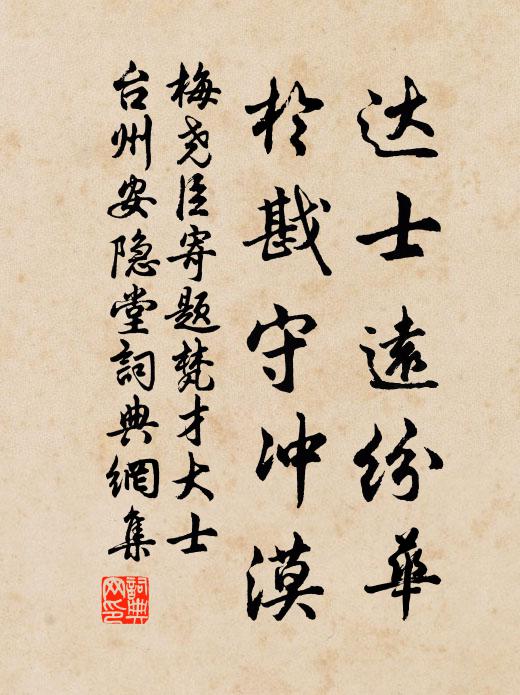 达士遠纷華
於戡守冲漠
梅尧臣寄题梵才大士
台州安隐堂詞典網集
詞典网印